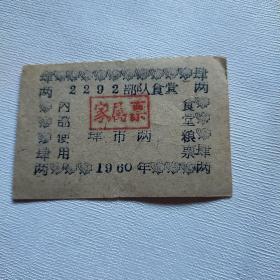 肆两
肆两
2292部队食堂
家属票
肆市两
内部使用
食堂粮票
肆两
肆两
1960年